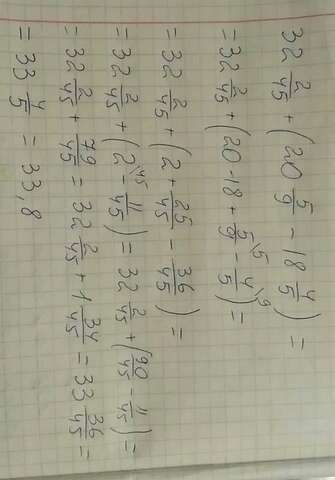 32 2/45 + (20 5/9 - 18 4/5) =
= 32 2/45 + (20 - 18 + 5/9 \5 - 4/5 \9) =
= 32 2/45 + (2 + 25/45 - 36/45) =
= 32 2/45 + (2 \45 - 11/45) = 32 2/45 + (90/45 - 11/45) =
= 32 2/45 + 79/45 = 32 2/45 + 1 34/45 = 33 36/45 =
= 33 4/5 = 33,8